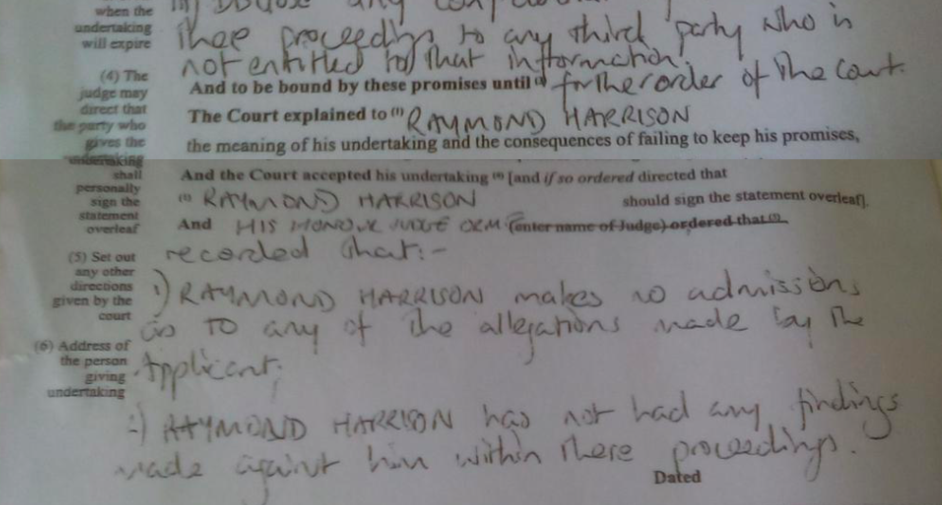 when the
undertaking
will expire
(4) The
judge may
direct that
the party who
gives the
undertaking
shall
personally
sign the
statement
overleaf
(5) Set out
any other
directions
given by the
court
(6) Address of
the person
giving
undertaking
any
these proceedings to any third party who is
not entitled to that information.
And to be bound by these promises until (3) further order of the Court.
The Court explained to (1) RAYMOND HARRISON
the meaning of his undertaking and the consequences of failing to keep his promises,
And the Court accepted his undertaking (4) [and if so ordered directed that
(1) RAYMOND HARRISON should sign the statement overleaf].
And HIS HONOUR JUDGE ORM (enter name of Judge) ordered that (5)
recorded that:-
1) RAYMOND HARRISON makes no admissions
as TO any of the allegations made by the
Applicant;
2) RAYMOND HARRISON has not had any findings
made against him within these proceedings.
Dated